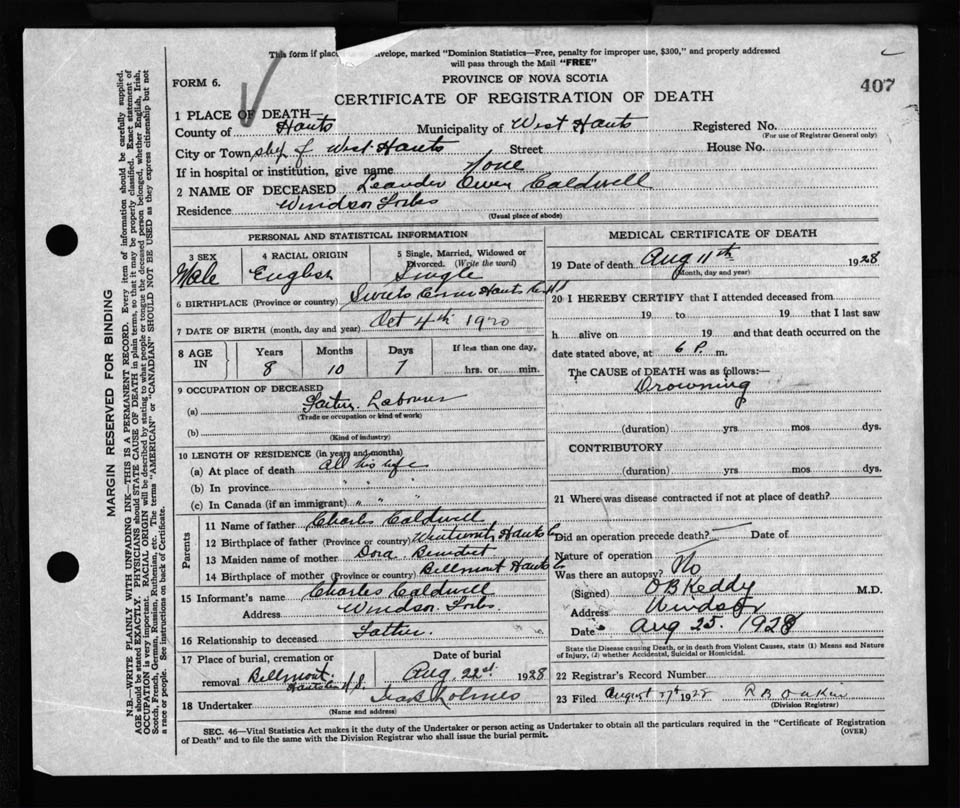 This form if place envelope, marked "Dominion Statistics—Free, penalty for improper use, $300," and properly addressed
will pass through the Mail "FREE"
FORM 6.
PROVINCE OF NOVA SCOTIA
407
CERTIFICATE OF REGISTRATION OF DEATH
1 PLACE OF DEATH
County of Hants Municipality of West Hants Registered No.
(For use of Registrar General only)
City or Town of West Hants Street House No.
If in hospital or institution, give name None
2 NAME OF DECEASED Leander Owen Caldwell
Residence Windsor Forks
(Usual place of abode)
PERSONAL AND STATISTICAL INFORMATION
3 SEX 4 RACIAL ORIGIN 5 Single, Married, Widowed or
Divorced. (Write the word)
Male English Single
6 BIRTHPLACE (Province or country) Hants Co. N.S
7 DATE OF BIRTH (month, day and year) Oct 4th 1920
8 AGE IN Years Months Days If less than one day,
8 10 7 hrs. or min.
9 OCCUPATION OF DECEASED
(a) Labourer
(Trade or occupation or kind of work)
(b)
(Kind of industry)
10 LENGTH OF RESIDENCE (in years and months)
(a) At place of death All his life
(b) In province " " "
(c) In Canada (if an immigrant) " " "
Parents
11 Name of father Charles Caldwell
12 Birthplace of father (Province or country) Wentworth Hants Co
13 Maiden name of mother Dora Benedict
14 Birthplace of mother (Province or country) Bellmont Hants Co
15 Informant's name Charles Caldwell
Address Windsor Forks
16 Relationship to deceased Father.
17 Place of burial, cremation or Date of burial
removal Bellmont Aug. 22nd. 1928
Hants Co N.S.
18 Undertaker Holmes
(Name and address)
MEDICAL CERTIFICATE OF DEATH
19 Date of death Aug 11th 1928
(Month, day and year)
20 I HEREBY CERTIFY that I attended deceased from
19 to 19 that I last saw
h alive on 19 and that death occurred on the
date stated above, at 6 P. m.
The CAUSE of DEATH was as follows:—
Drowning
(duration) yrs mos dys.
CONTRIBUTORY
(duration) yrs. mos dys.
21 Where was disease contracted if not at place of death?
Did an operation precede death? — Date of
Nature of operation
Was there an autopsy? No
(Signed) O B Keddy M.D.
Address Windsor
Date Aug 25. 1928
State the Disease causing Death, or in death from Violent Causes, state (1) Means and Nature
of Injury, (2) whether Accidental, Suicidal or Homicidal.
22 Registrar's Record Number
23 Filed August 27th 1928 R B Oakin
(Division Registrar)
SEC. 46—Vital Statistics Act makes it the duty of the Undertaker or person acting as Undertaker to obtain all the particulars required in the "Certificate of Registration
of Death" and to file the same with the Division Registrar who shall issue the burial permit.
(OVER)
MARGIN RESERVED FOR BINDING
N.B.—WRITE PLAINLY WITH UNFADING INK—THIS IS A PERMANENT RECORD. Every item of information should be carefully supplied.
AGE should be stated EXACTLY. PHYSICIANS should STATE CAUSE OF DEATH in plain terms, so that it may be properly classified. Exact statement of
OCCUPATION is very important. RACIAL ORIGIN will be described by stating to what people or tongue the deceased person belonged, whether English, Irish,
Scotch, French, German, Russian, Ruthenian, etc. The terms "AMERICAN" or "CANADIAN" SHOULD NOT BE USED as they express citizenship but not
a race or people. See instructions on back of Certificate.